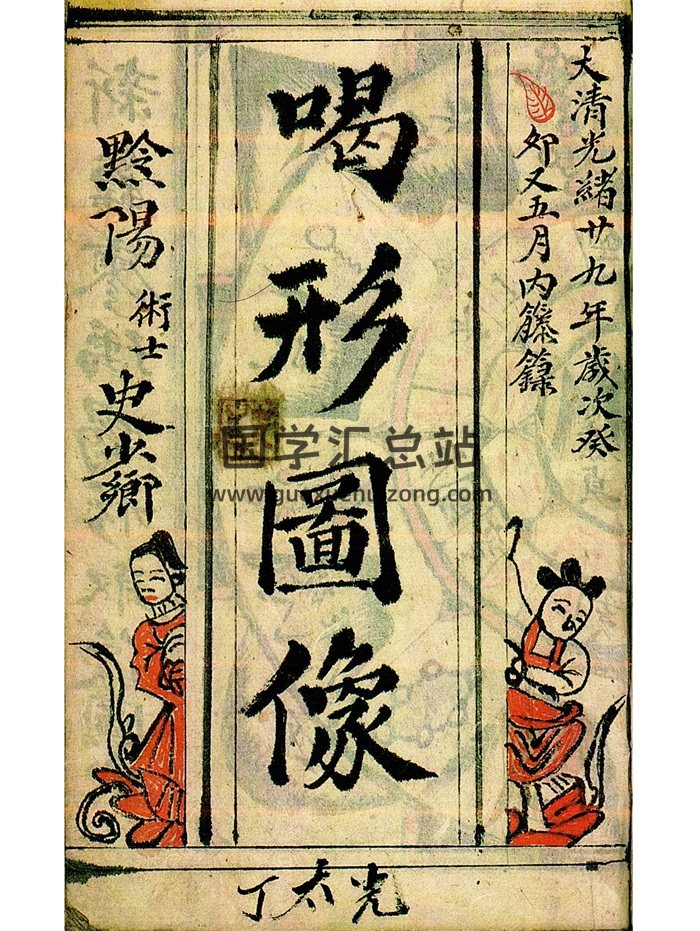 大清光緒廿九年歲次癸
夘又五月内籐籙
喝形圖像
黔陽術士史少鄉
光太丁
国学汇总站
www.guoxuehuizong.com